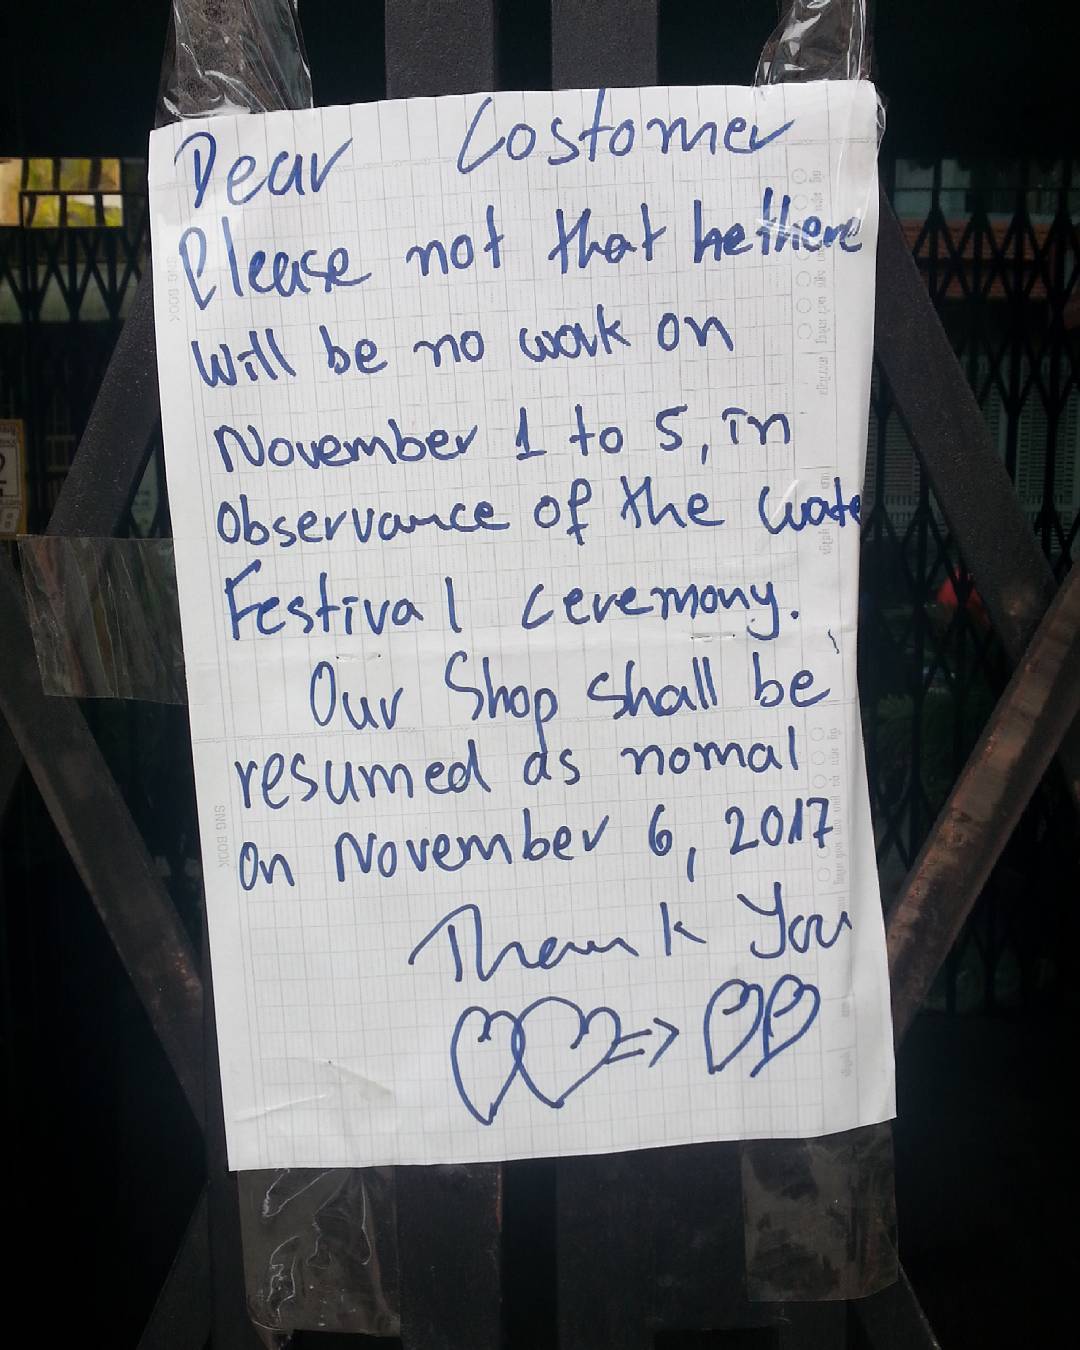 Dear Costomer
Please not that he there
will be no work on
November 1 to 5, in
Observance of the wate
Festival ceremony.
Our Shop shall be
resumed as nomal
on November 6, 2017
Thank You
SNG BOOK
SNG BOOK